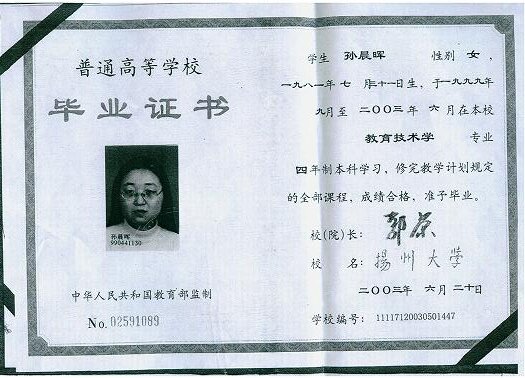 普通高等学校
毕业证书
孙晨晖
990441130
中华人民共和国教育部监制
No. 02591089
学生 孙晨晖 性别 女，
一九八一年 七 月二十一日生，于一九九九年
九月至 二〇〇三年 六 月在本校
教育技术学 专业
四年制本科学习，修完教学计划规定
的全部课程，成绩合格，准予毕业。
校(院)长：
校 名：揚州大学
二〇〇三年 六 月 二十日
学校编号：11117120030501447